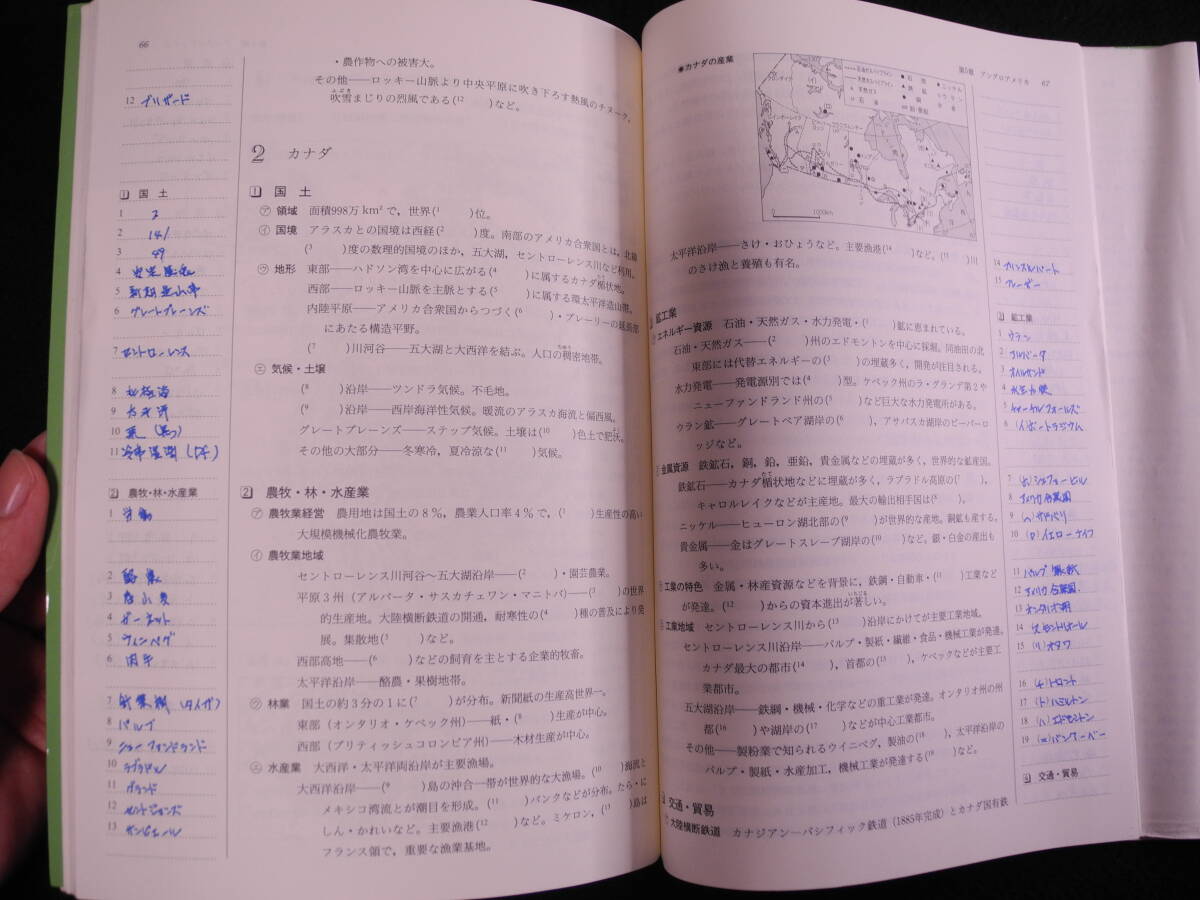 66
・農作物への被害大。
その他――ロッキー山脈より中央平原に吹き下ろす熱風のチヌーク。
吹雪まじりの烈風である(12 )など。
12 ブリザード
2 カナダ
1 国土
㋐ 領域 面積998万km²で，世界(1 )位。
㋑ 国境 アラスカとの国境は西経(2 )度。南部のアメリカ合衆国とは，北緯
(3 )度の数理的国境のほか，五大湖，セントローレンス川など利用。
㋒ 地形 東部――ハドソン湾を中心に広がる(4 )に属するカナダ楯状地。
西部――ロッキー山脈を主脈とする(5 )に属する環太平洋造山帯。
内陸平原――アメリカ合衆国からつづく(6 )・プレーリーの延長部
にあたる構造平野。
(7 )川河谷――五大湖と大西洋を結ぶ。人口の稠密地帯。
㋓ 気候・土壌
(8 )沿岸――ツンドラ気候。不毛地。
(9 )沿岸――西岸海洋性気候。暖流のアラスカ海流と偏西風。
グレートプレーンズ――ステップ気候。土壌は(10 )色土で肥沃。
その他の大部分――冬寒冷，夏冷涼な(11 )気候。
1 国土
1 2
2 141
3 49
4 安定陸塊
5 新期造山帯
6 グレートプレーンズ
7 セントローレンス
8 北極海
9 太平洋
10 黒
11 冷帯湿潤 (Df)
2 農牧・林・水産業
㋐ 農牧業経営 農用地は国土の8％，農業人口率4％で，(1 )生産性の高い
大規模機械化農牧業。
㋑ 農牧業地域
セントローレンス川河谷～五大湖沿岸――(2 )・園芸農業。
平原3州（アルバータ・サスカチェワン・マニトバ）――(3 )の世界
的生産地。大陸横断鉄道の開通，耐寒性の(4 )種の普及により発
展。集散地(5 )など。
西部高地――(6 )などの飼育を主とする企業的牧畜。
太平洋沿岸――酪農・果樹地帯。
㋒ 林業 国土の約3分の1に(7 )が分布。新聞紙の生産高世界一。
東部（オンタリオ・ケベック州）――紙・(8 )生産が中心。
西部（ブリティッシュコロンビア州）――木材生産が中心。
㋓ 水産業 大西洋・太平洋両沿岸が主要漁場。
大西洋沿岸――(9 )島の沖合一帯が世界的な大漁場。(10 )海流と
メキシコ湾流とが潮目を形成。(11 )バンクなどが分布。たら・に
しん・かれいなど。主要漁港(12 )など。ミケロン，(13 )島は
フランス領で，重要な漁業基地。
2 農牧・林・水産業
1 労働
2 酪農
3 春小麦
4 ガーネット
5 ウィニペグ
6 肉牛
7 針葉樹 (タイガ)
8 パルプ
9 ニューファンドランド
10 ラブラドル
11 グランド
12 セントジョンズ
13 サンピエール
第5章 アングロアメリカ 67
●カナダの産業
1000km
太平洋沿岸――さけ・おひょうなど。主要漁港(14 )など。(15 )川
のさけ漁と養殖も有名。
鉱工業
エネルギー資源 石油・天然ガス・水力発電・(1 )鉱に恵まれている。
石油・天然ガス――(2 )州のエドモントンを中心に採掘。同油田の北
東部には代替エネルギーの(3 )の埋蔵多く，開発が注目される。
水力発電――発電源別では(4 )型。ケベック州のラ・グランデ第2や
ニューファンドランド州の(5 )など巨大な水力発電所がある。
ウラン鉱――グレートベア湖岸の(6 )，アサバスカ湖岸のビーバーロ
ッジなど。
金属資源 鉄鉱石，銅，鉛，亜鉛，貴金属などの埋蔵が多く，世界的な鉱産国。
鉄鉱石――カナダ楯状地などに埋蔵が多く，ラブラドル高原の(7 )，
キャロルレイクなどが主産地。最大の輸出相手国は(8 )。
ニッケル――ヒューロン湖北部の(9 )が世界的な産地。銅鉱も産する。
貴金属――金はグレートスレーブ湖岸の(10 )など。銀・白金の産出も
多い。
工業の特色 金属・林産資源などを背景に，鉄鋼・自動車・(11 )工業など
が発達。(12 )からの資本進出が著しい。
工業地域 セントローレンス川から(13 )沿岸にかけてが主要工業地域。
セントローレンス川沿岸――パルプ・製紙・繊維・食品・機械工業が発達。
カナダ最大の都市(14 )，首都の(15 )，ケベックなどが主要工
業都市。
五大湖沿岸――鉄鋼・機械・化学などの重工業が発達。オンタリオ州の州
都(16 )や湖岸の(17 )などが中心工業都市。
その他――製粉業で知られるウィニペグ，製油の(18 )，太平洋沿岸の
パルプ・製紙・水産加工，機械工業が発達する(19 )など。
交通・貿易
大陸横断鉄道 カナジアン―パシフィック鉄道（1885年完成）とカナダ国有鉄
14 プリンスルパート
15 フレーザー
3 鉱工業
1 ウラン
2 アルバータ
3 オイルサンド
4 水主火従
5 チャーチルフォールズ
6 (イ)ポートラジウム
7 (ホ)シェファービル
8 アメリカ合衆国
9 (ヘ)サドバリ
10 (ロ)イエローナイフ
11 パルプ製紙
12 アメリカ合衆国
13 オンタリオ湖
14 モントリオール
15 (リ)オタワ
16 (チ)トロント
17 (ト)ハミルトン
18 (ハ)エドモントン
19 (ニ)バンクーバー
4 交通・貿易